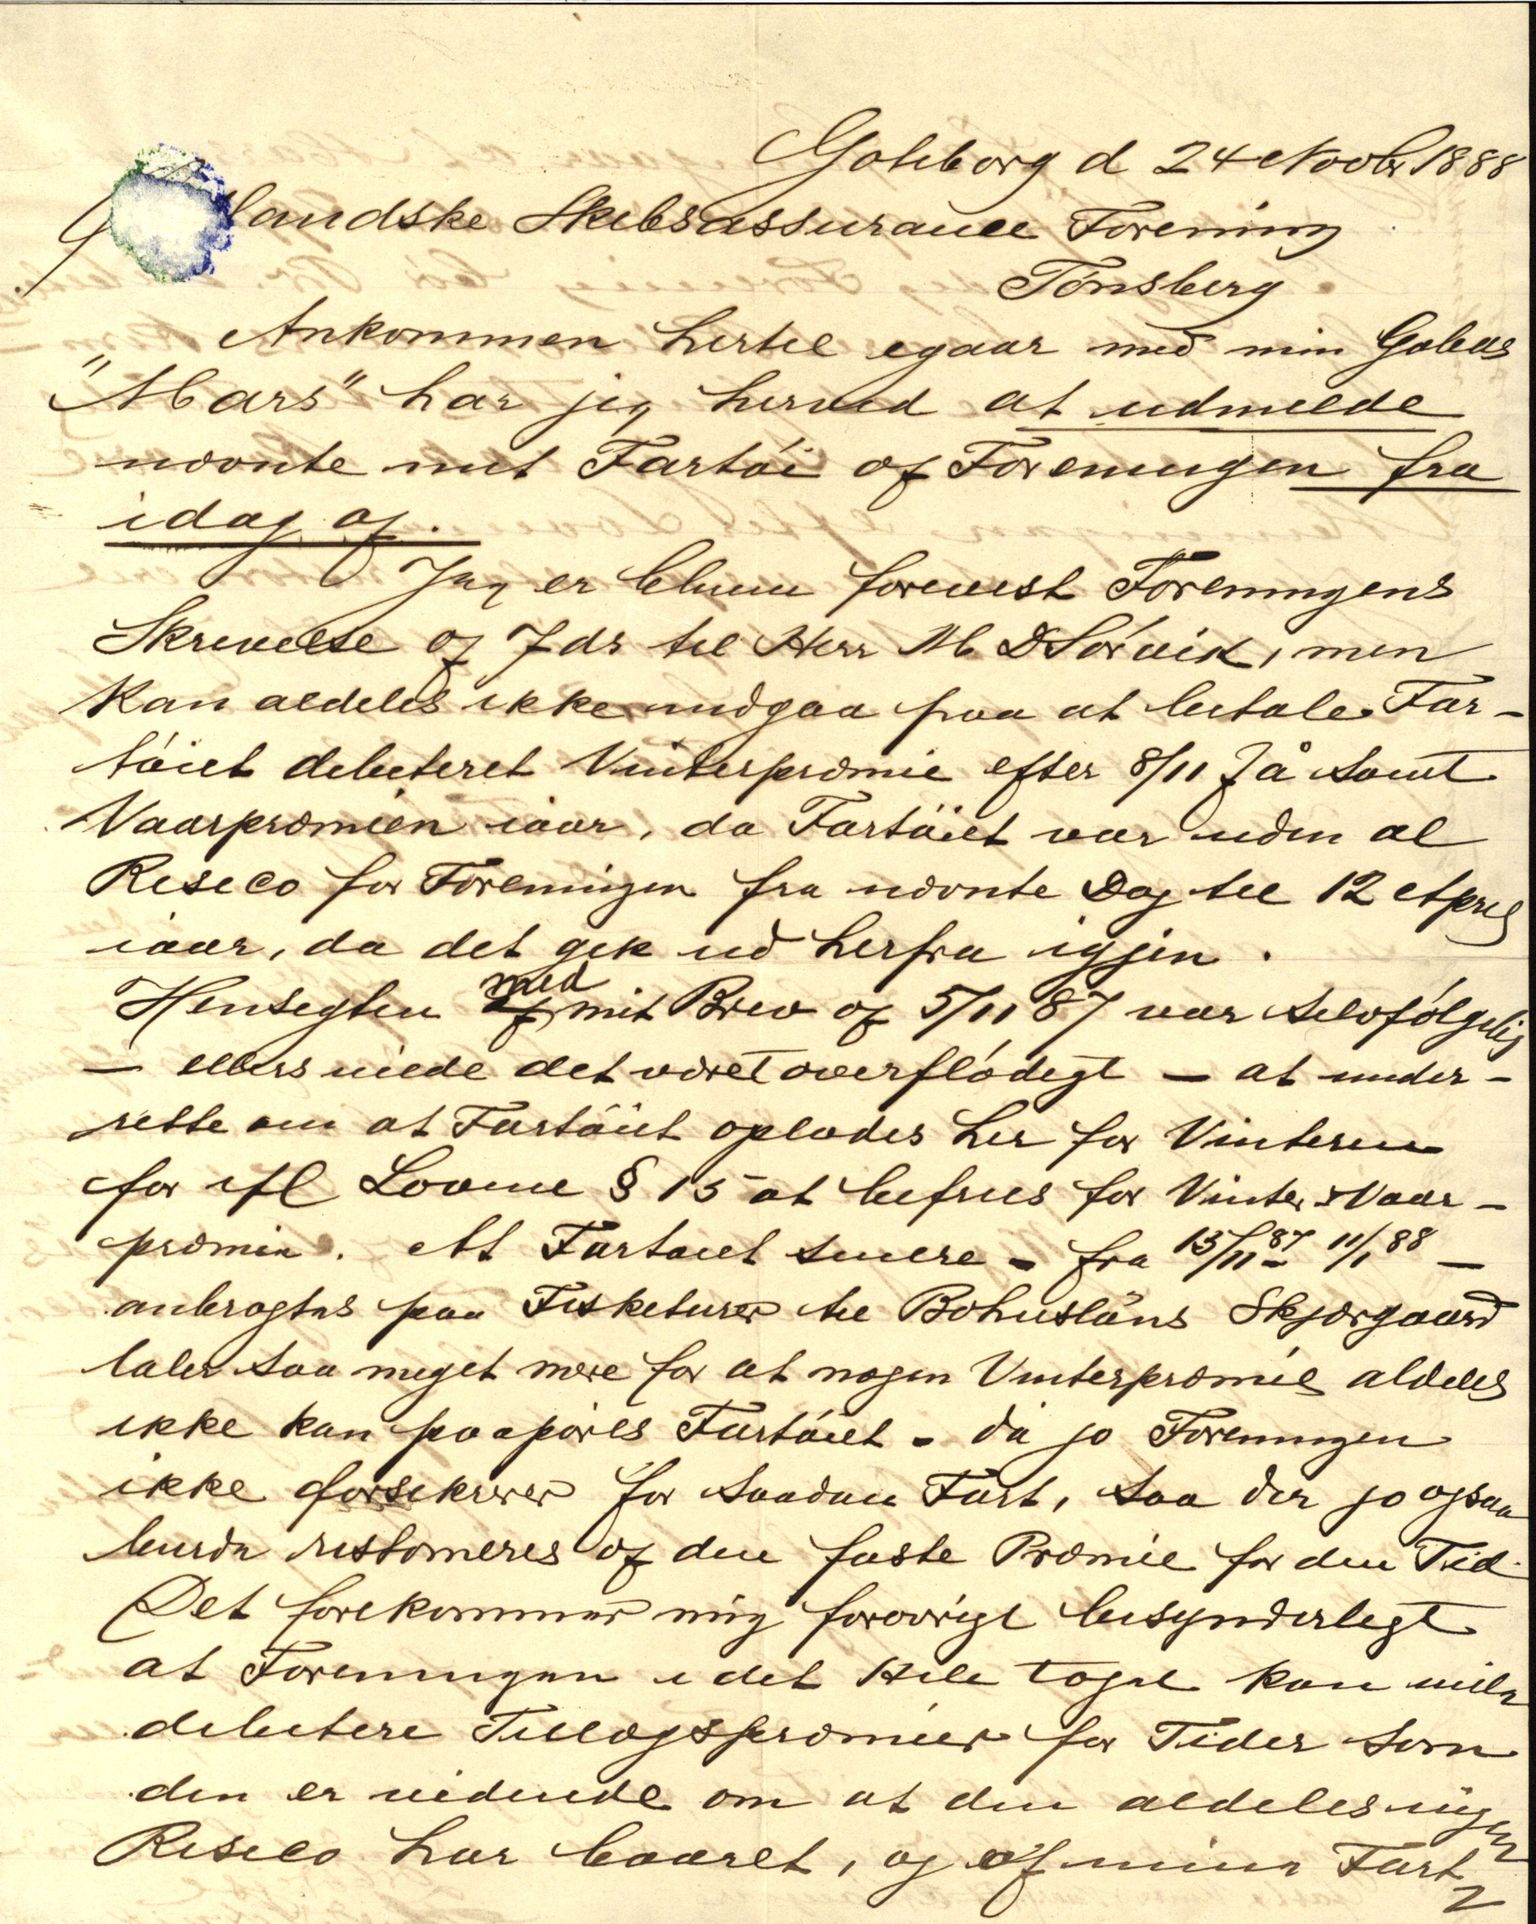 Goteborg d 24 Novbr 1888
landske Skibsassurance Forening
Tönsberg
Ankommen hertil igaar med min Galeas
"Mars" har jeg herved at udmelde
nævnte mit Fartöi af Foreningen fra
idag af.
Jeg er bleven forevist Foreningens
Skrivelse af 7 ds til Herr M D Sörvik, men
kan aldeles ikke indgaa paa at betale Far-
töiet debiteret Vinterpræmie efter 8/11 f å samt
Vaarpræmien iaar, da Fartöiet var uden al
Risico for Foreningen fra nævnte Dag til 12 April
iaar, da det gik ud herfra igjen.
Hensigten med mit Brev af 5/11 87 var selvfölgelig
– ellers vilde det været overflödigt – at under-
rette om at Fartöiet oplades her for Vinteren
for ifl Lovene § 15 at befries for Vinter & Vaar-
præmie. At Fartöiet senere – fra 15/11 87 – 11/1 88 –
anbragtes paa Fisketurer til Bohusläns Skjærgaard
taler saa meget mere for at nogen Vinterpræmie aldeles
ikke kan paaföres Fartöiet – da jo Foreningen
ikke forsikrerer for saadan Fart, saa der jo ogsaa
burde ristorneres af den faste Præmie for den Tid.
Det forekommer mig forövrigt besynderligt
at Foreningen i det Hele taget kan ville
debitere Tillægspræmier for Tider som
den er vidende om at den aldeles ingen
Risico har baaret, og af mine Fart
2